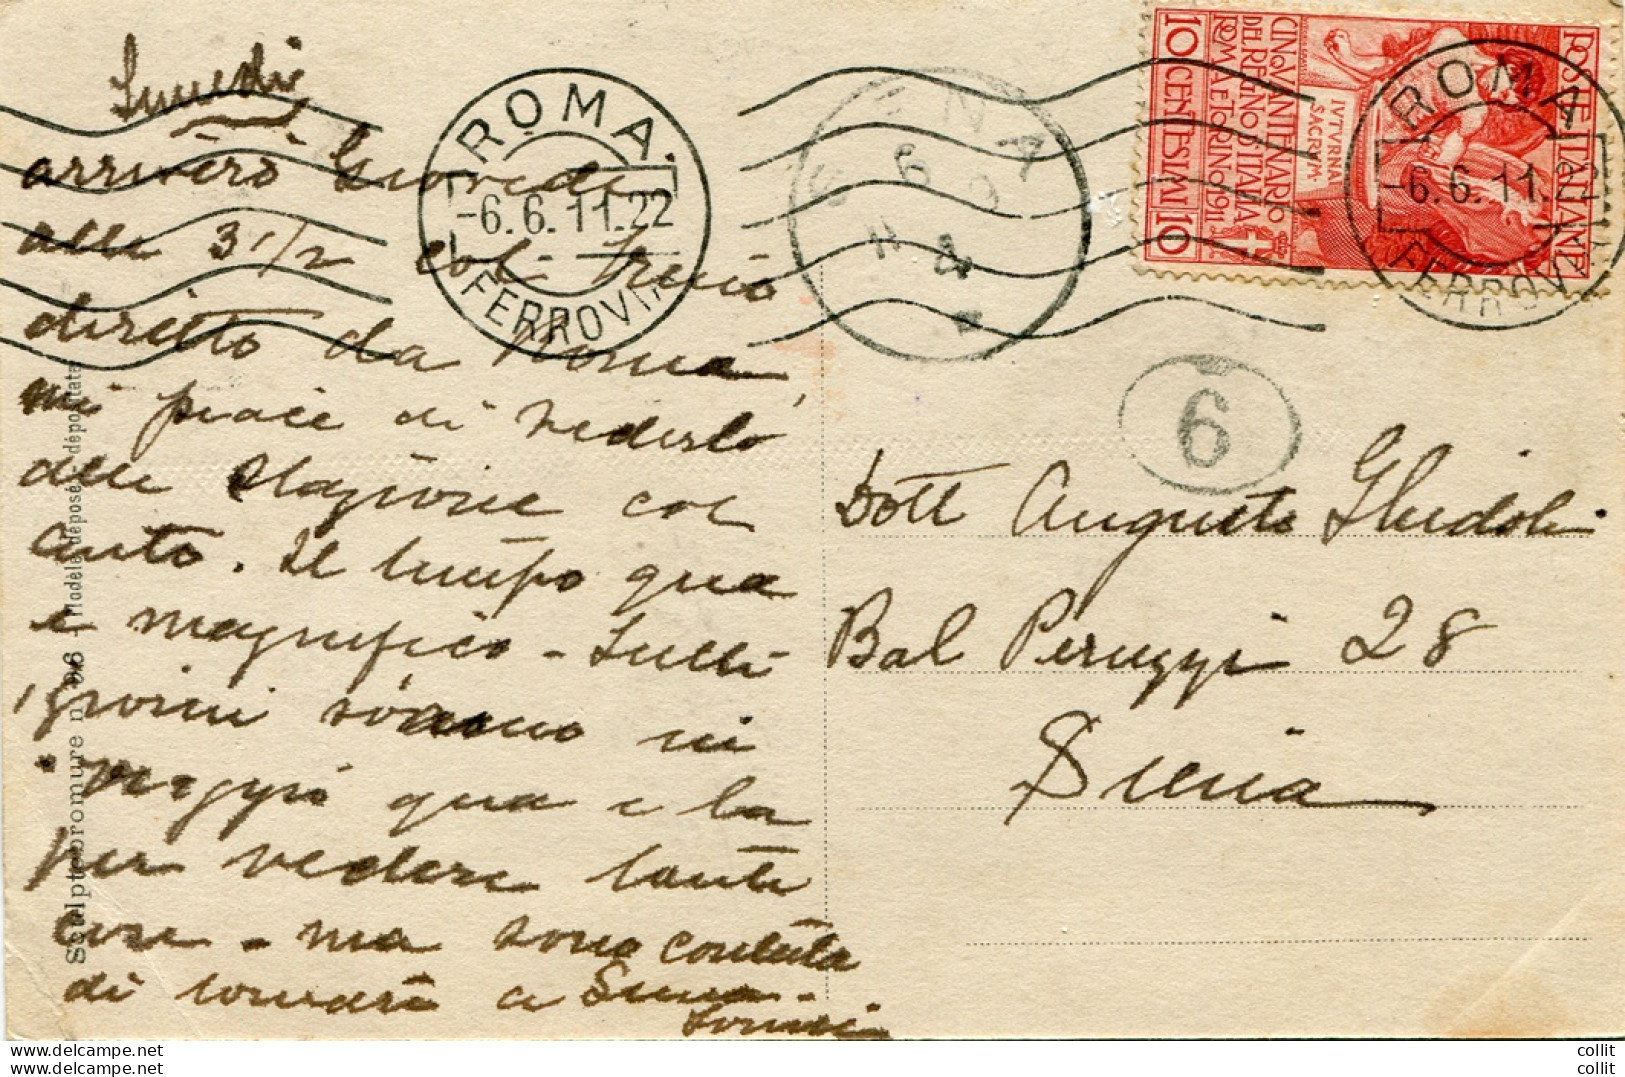 Lunedi
arriverò Giovedi
alle 3 1/2 col treno
diretto da Roma,
mi piace di vederlo
alla stazione col
auto. Il tempo qua
è magnifico - Tutti
i giorni siamo in
viaggio qua e la
per vedere tante
cose - ma sono contenta
di tornare a Siena -
Sculptobromure n.
Modèle déposé - dépositate
ROMA
-6.6.11.22
FERROVIA
SIENA
6
Dott Augusto Ghidoli
Bal Peruzzi 28
Siena
POSTE ITALIANE
CINQVANTENARIO
DEL REGNO D'ITALIA
ROMA E TORINO 1911
10 CENTESIMI 10
IVTVRNA
SACRVM
ROMA
-6.6.11.22
FERROVIA
collit
collit